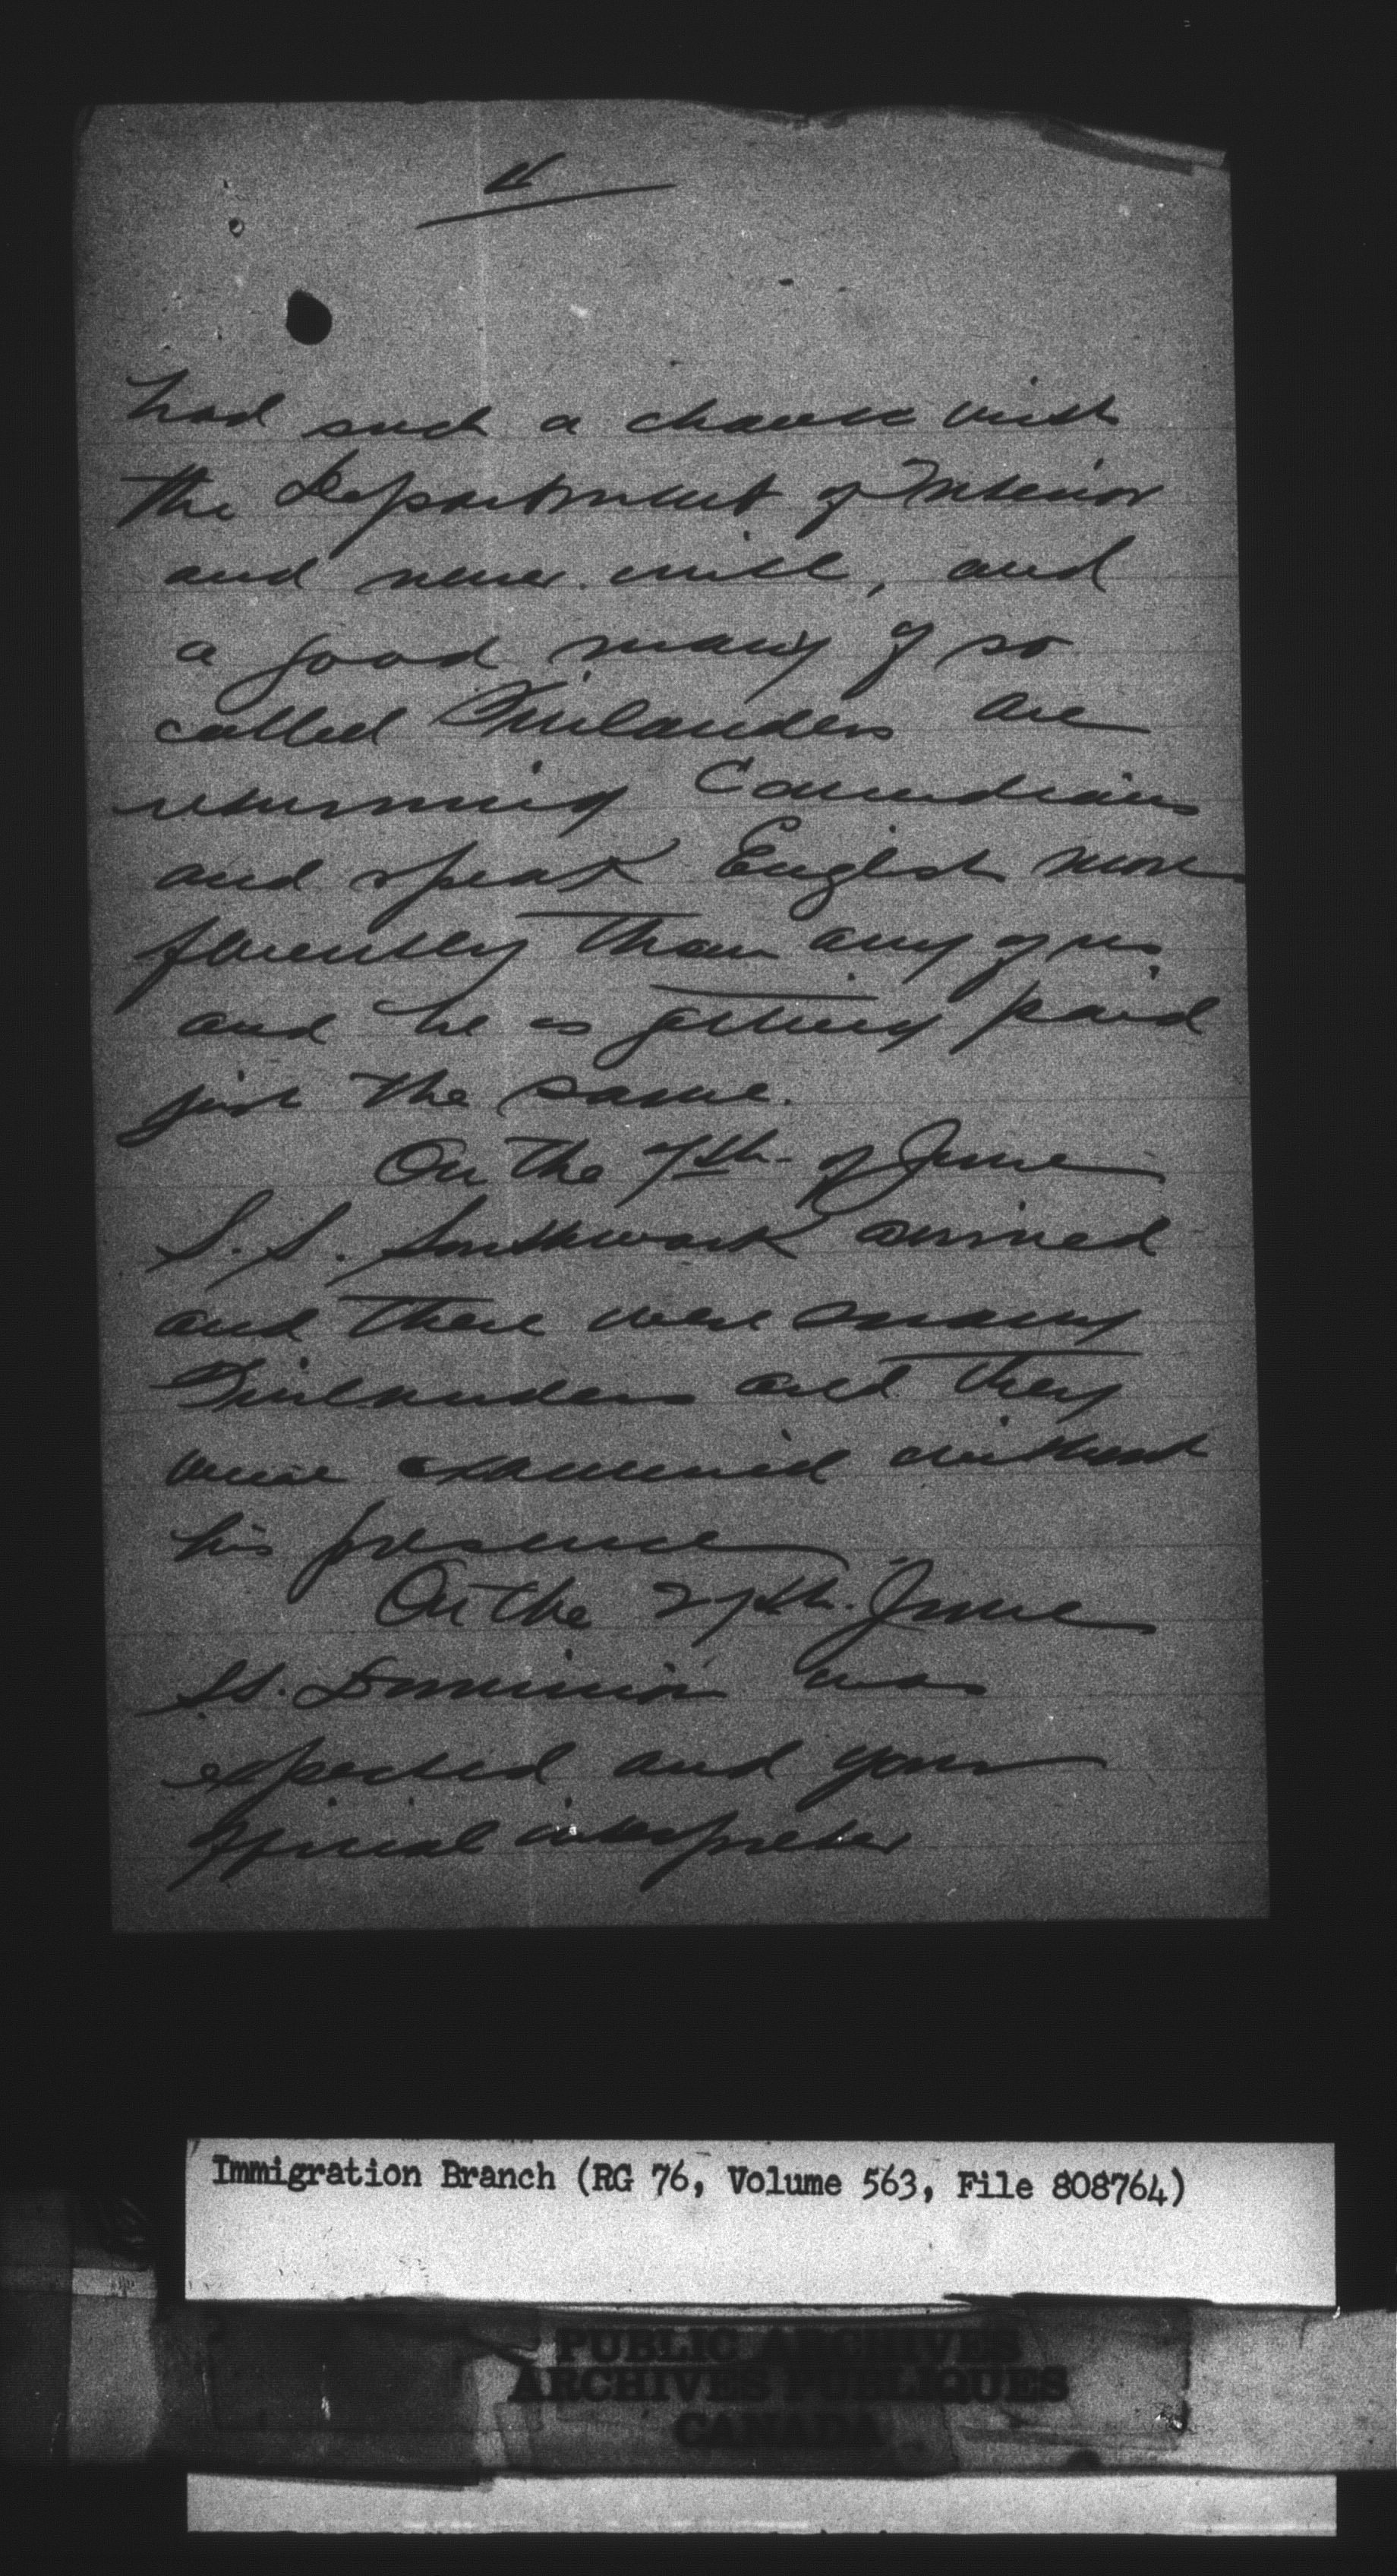 had such a chance with
the Department of Interior
and never will, and
a good many of so
called Finlanders are
returning Canadians
and speak English more
fluently than any of us
and he is getting paid
just the same.
On the 7th. of June
S. S. Southwark arrived
and there were many
Finlanders and they
were examined without
his presence
On the 27th. June
SS. Dominion was
expected and your
official interpreter
Immigration Branch (RG 76, Volume 563, File 808764)
PUBLIC ARCHIVES
ARCHIVES PUBLIQUES
CANADA